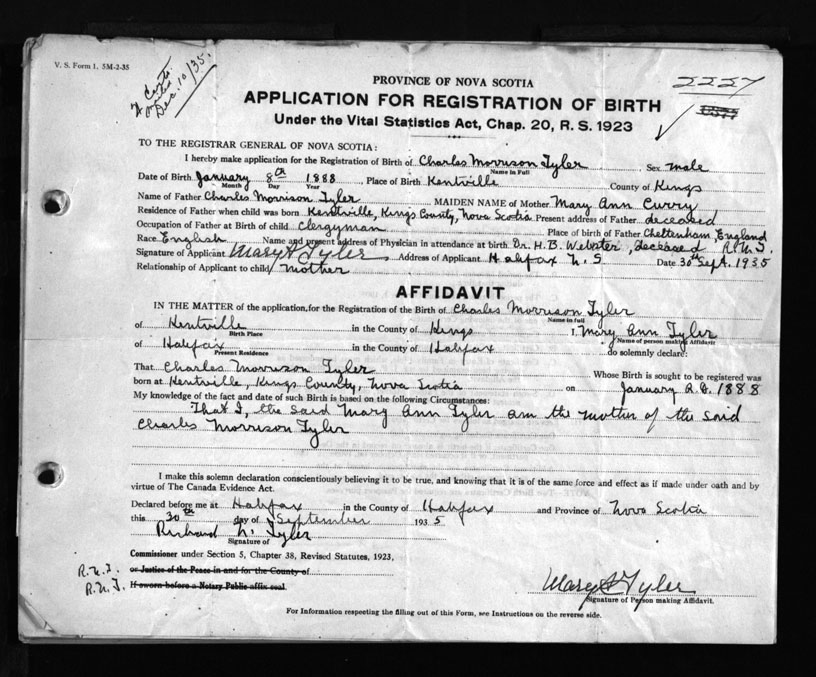 V. S. Form 1. 5M-2-35
Dec. 10/35.
2227
PROVINCE OF NOVA SCOTIA
APPLICATION FOR REGISTRATION OF BIRTH
Under the Vital Statistics Act, Chap. 20, R. S. 1923
TO THE REGISTRAR GENERAL OF NOVA SCOTIA:
I hereby make application for the Registration of Birth of Charles Morrison Tyler Sex male
Name in Full
Date of Birth January 8th 1888 Place of Birth Kentville County of Kings
Month Day Year
Name of Father Charles Morrison Tyler MAIDEN NAME of Mother Mary Ann Curry
Residence of Father when child was born Kentville, Kings County, Nova Scotia Present address of Father deceased
Occupation of Father at Birth of child clergyman Place of birth of Father Cheltenham, England
Race English Name and present address of Physician in attendance at birth Dr. H. B. Webster, deceased R.N.T.
Signature of Applicant Mary A Tyler Address of Applicant Halifax N. S Date 30th Sept. 1935
Relationship of Applicant to child mother
AFFIDAVIT
IN THE MATTER of the application, for the Registration of the Birth of Charles Morrison Tyler
Name in full
of Kentville in the County of Kings I, Mary Ann Tyler
Birth Place Name of person making Affidavit
of Halifax in the County of Halifax do solemnly declare:
Present Residence
That Charles Morrison Tyler Whose Birth is sought to be registered was
born at Kentville, Kings County, Nova Scotia on January A.D. 1888
My knowledge of the fact and date of such Birth is based on the following Circumstances:
That I, the said Mary Ann Tyler am the mother of the said
Charles Morrison Tyler
I make this solemn declaration conscientiously believing it to be true, and knowing that it is of the same force and effect as if made under oath and by
virtue of The Canada Evidence Act.
Declared before me at Halifax in the County of Halifax and Province of Nova Scotia
this 30th day of September 1935
Richard N. Tyler
Signature of
Commissioner under Section 5, Chapter 38, Revised Statutes, 1923,
R.N.T. or Justice of the Peace in and for the County of
R.N.T. If sworn before a Notary Public affix seal.
Mary A Tyler
Signature of Person making Affidavit.
For Information respecting the filling out of this Form, see Instructions on the reverse side.